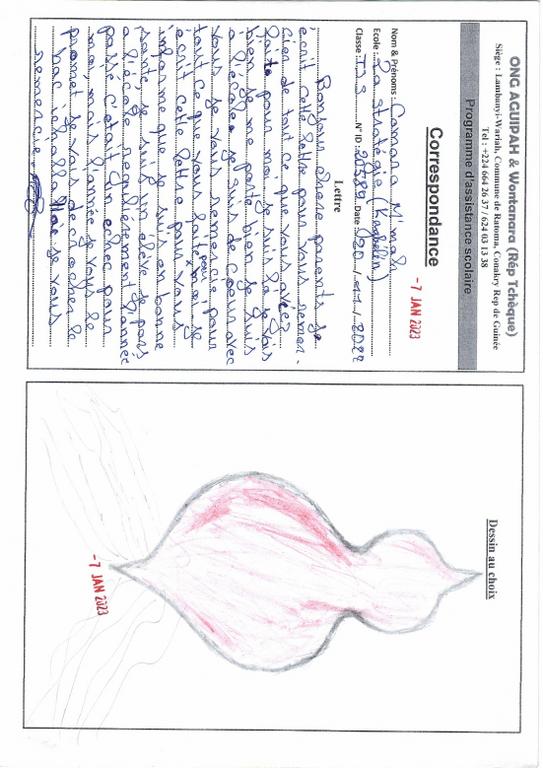 ONG AGUIPAH & Wontanara (Rép Tchèque)
Siège : Lambanyi-Wariah, Commune de Ratoma, Conakry Rep de Guinée
Tel : +224 664 26 37 / 624 03 13 38
Programme d'assistance scolaire
Correspondance
-7 JAN 2023
Nom & Prénoms : Camara M'mah
Ecole : La Stratégie (Kagbélin)
Classe : T.S.S N° ID : 20389 Date : 20/11/2022
Lettre
Bonjour chere parents je
écrit cette lettre pour vous remer-
cier de tout ce que vous avez
faite pour moi je suis la je vais
bien je me porte bien je suis
a l'ecole je suis de coeur avec
vous je vous remercie pour
tout ce que vous faite pour moi je
écrit cette lettre pour vous
informe que je suis en bonne
santé, je suis un élève je pars
a l'école regulièrement l'année
passé c'était un echec pour
moi, mais l'année je vous le
promet je vais decrocher le
bac inchalla je vous
remercie.
Dessin au choix
-7 JAN 2023